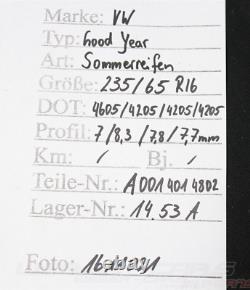 Marke: VW
Typ: Good Year
Art: Sommerreifen
Größe: 235/65 R16
DOT: 4605/4205/4205/4205
Profil: 7/8,3/7,8/7,7mm
Km: / Bj.: /
Teile-Nr.: A0014014802
Lager-Nr.: 14.53 A
Foto: